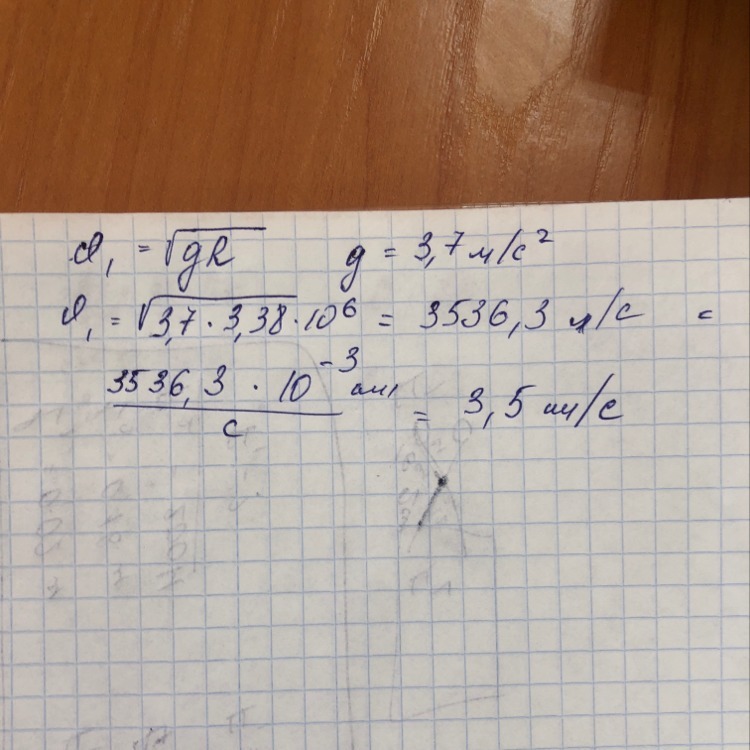 υ₁ = √gR g = 3,7 м/с²
υ₁ = √3,7 · 3,38 · 10⁶ = 3536,3 м/с =
3536,3 · 10⁻³ км/с = 3,5 км/с